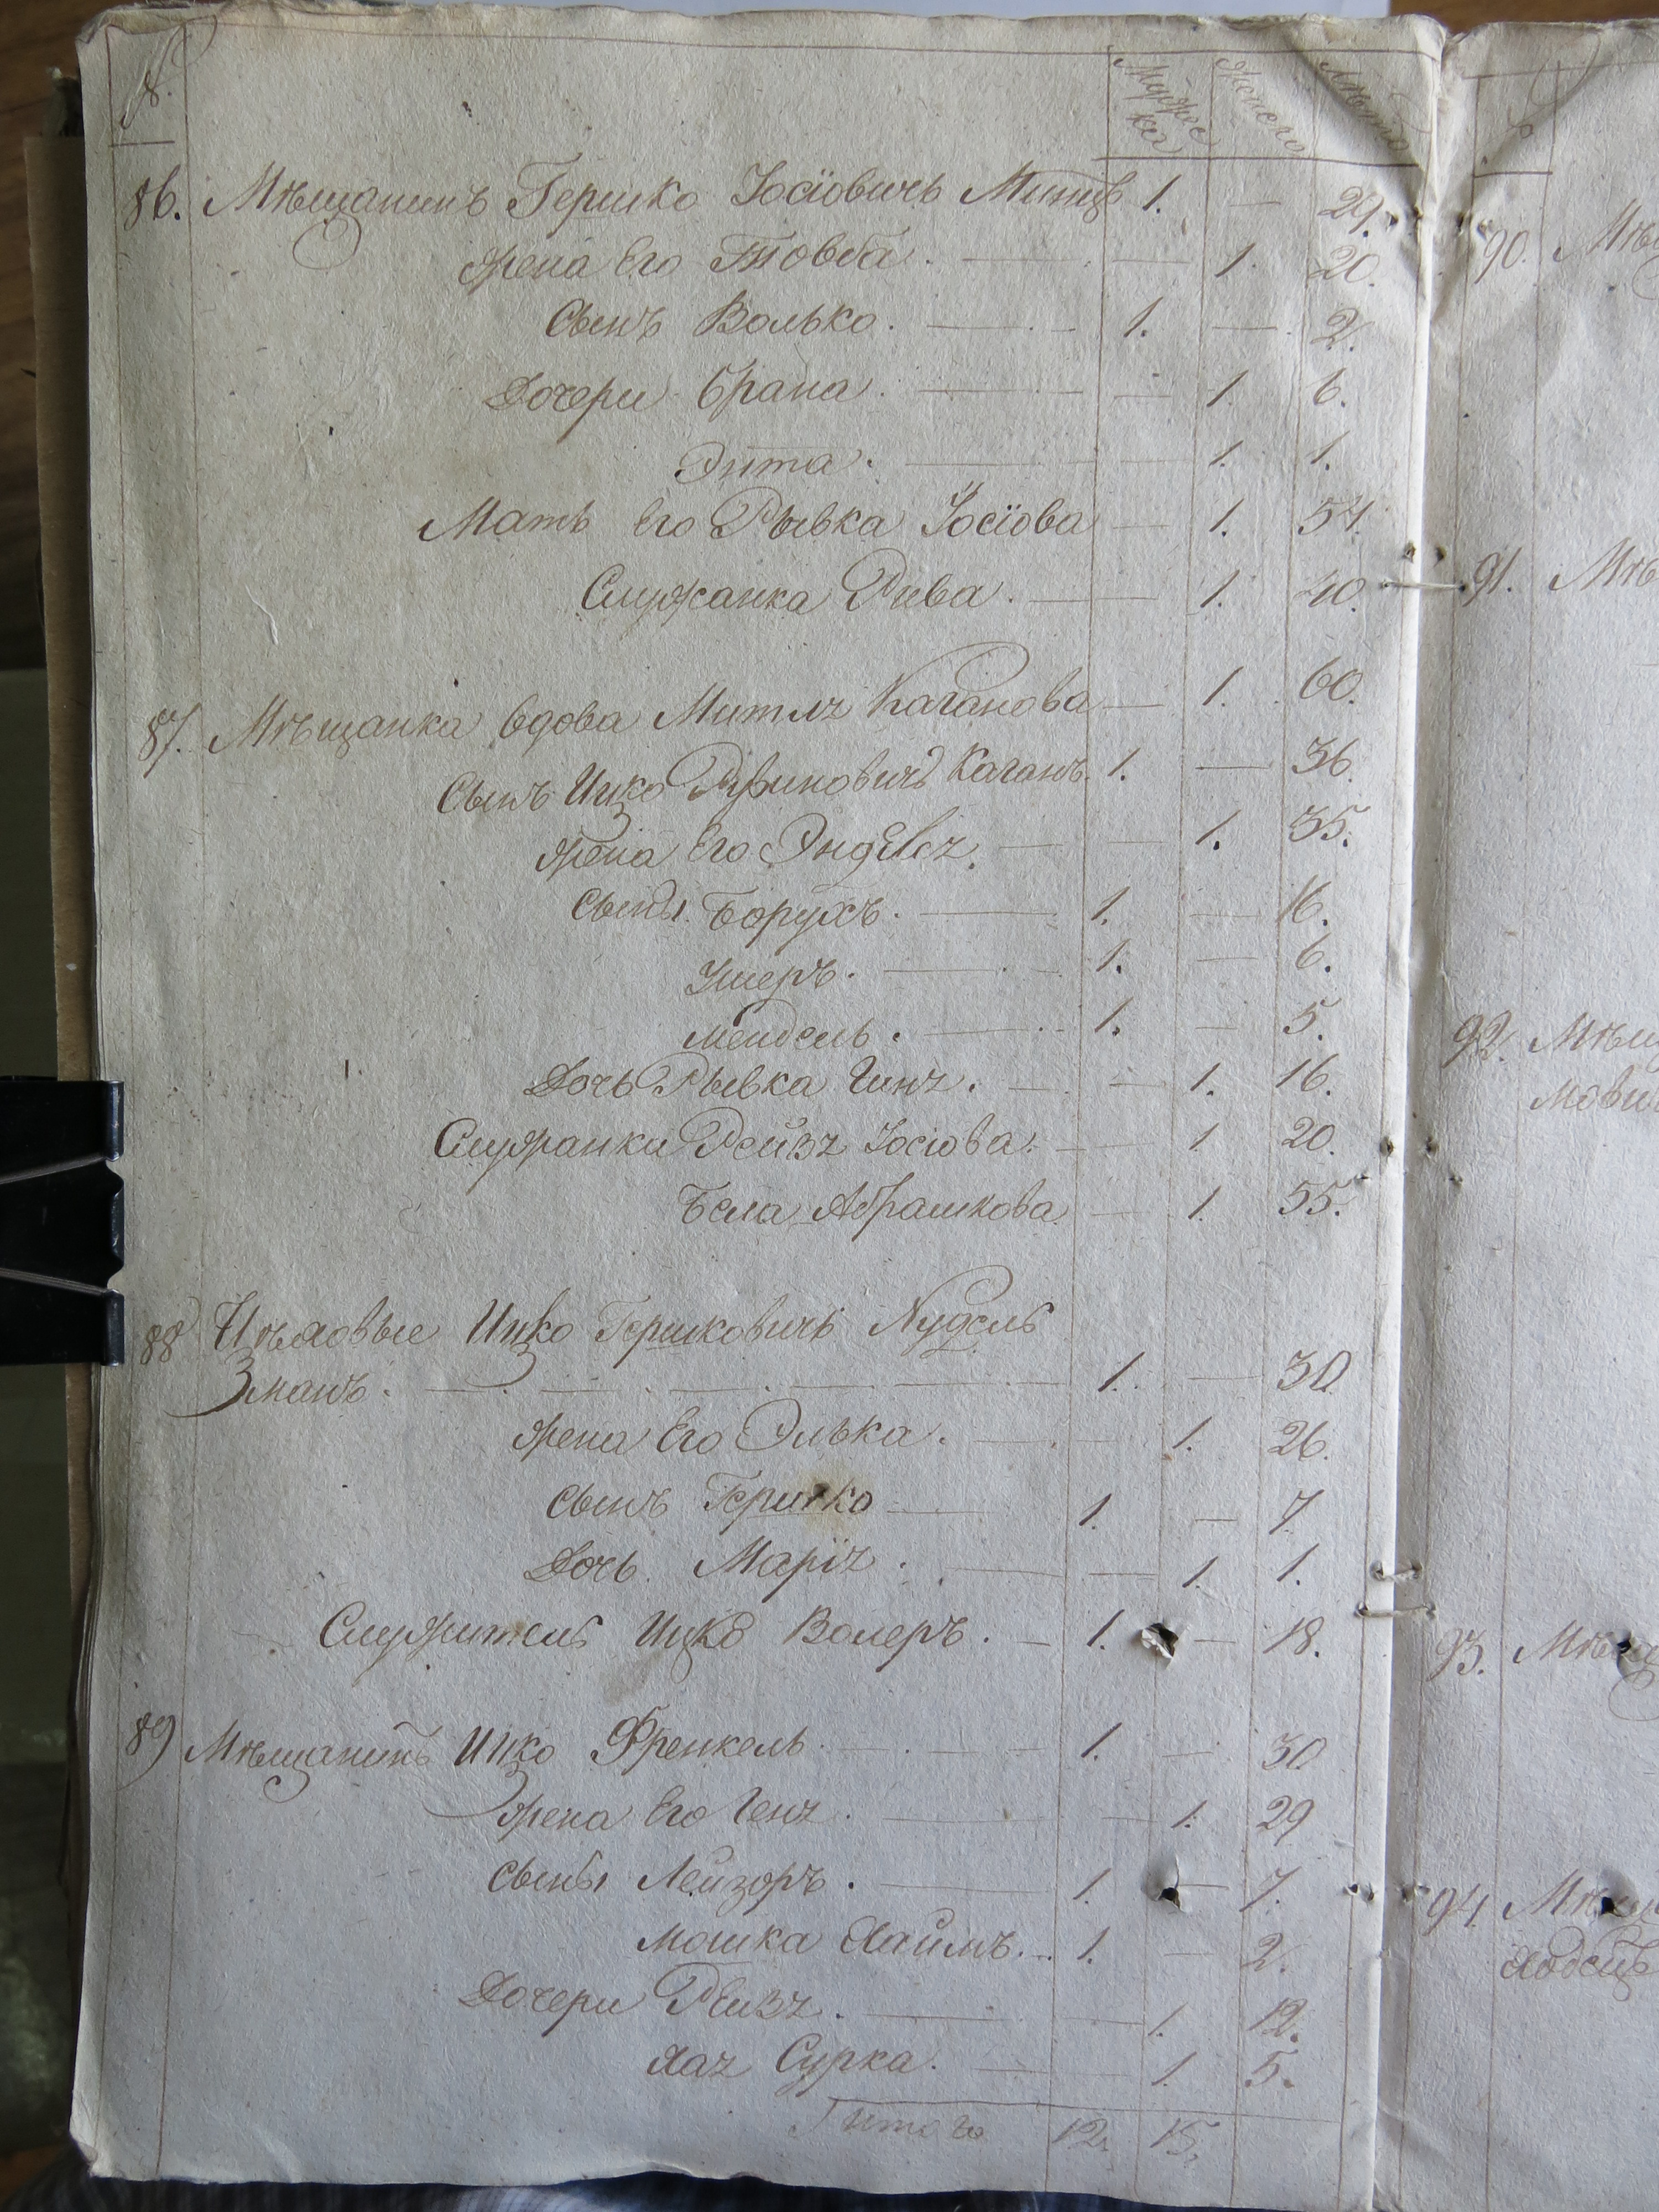 Мужеска Женска Лѣта
86. Мѣщанинъ Гершко Іосіовичъ 1. — 29.
Жена Его Товба. — 1. 20.
Сынъ Волько. 1. — 2.
Дочери Брана. — 1. 6.
Энта. — 1. 1.
Мать Его Рывка Іосіова — 1. 54.
Служанка Рива. — 1. 40.
87. Мѣщанка вдова Митля Каганова — 1. 60.
Сынъ Ицко Каганъ. 1. — 36.
Жена Его — 1. 35.
Сыны. Борухъ. 1. — 16.
Ушеръ. 1. — 6.
Мендель. 1. — 5.
Дочь Рывка Гиня. — 1. 16.
Служанки Рейзя Іосіова. — 1. 20.
Бела Абрашкова. — 1. 55.
88 Цѣховые Ицко Гершковичъ Нудель
манъ. 1. — 30.
Жена Его Элька. — 1. 26.
Сынъ Гершко 1. — 7
Дочь. Марія. — 1. 1.
Служитель Ицко Волеръ. 1. — 18.
89 Мѣщанинъ Ицко Френкель. 1. — 30
Жена Его Геня. — 1. 29
Сыны Лейзоръ. 1. — 7.
Мошка Хаимъ. 1. — 2.
Дочери Реизя. — 1. 12.
Хая Сурка. — 1. 5.
Итого 12. 15.
90. 
91. 
92. 
93. 
94.